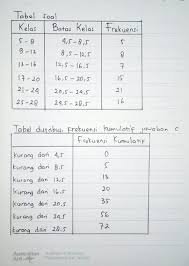 Tabel Soal
Kelas Batas Kelas Frekuensi
5-8 4,5-8,5 5
9-12 8,5-12,5 8
13-16 12,5-16,5 7
17-20 16,5-20,5 15
21-24 20,5-24,5 21
25-28 24,5-28,5 16
Tabel distribusi frekuensi kumulatif jawaban c
Frekuensi Kumulatif
kurang dari 4,5 0
kurang dari 8,5 5
kurang dari 12,5 13
kurang dari 16,5 20
kurang dari 20,5 35
kurang dari 24,5 56
kurang dari 28,5 72